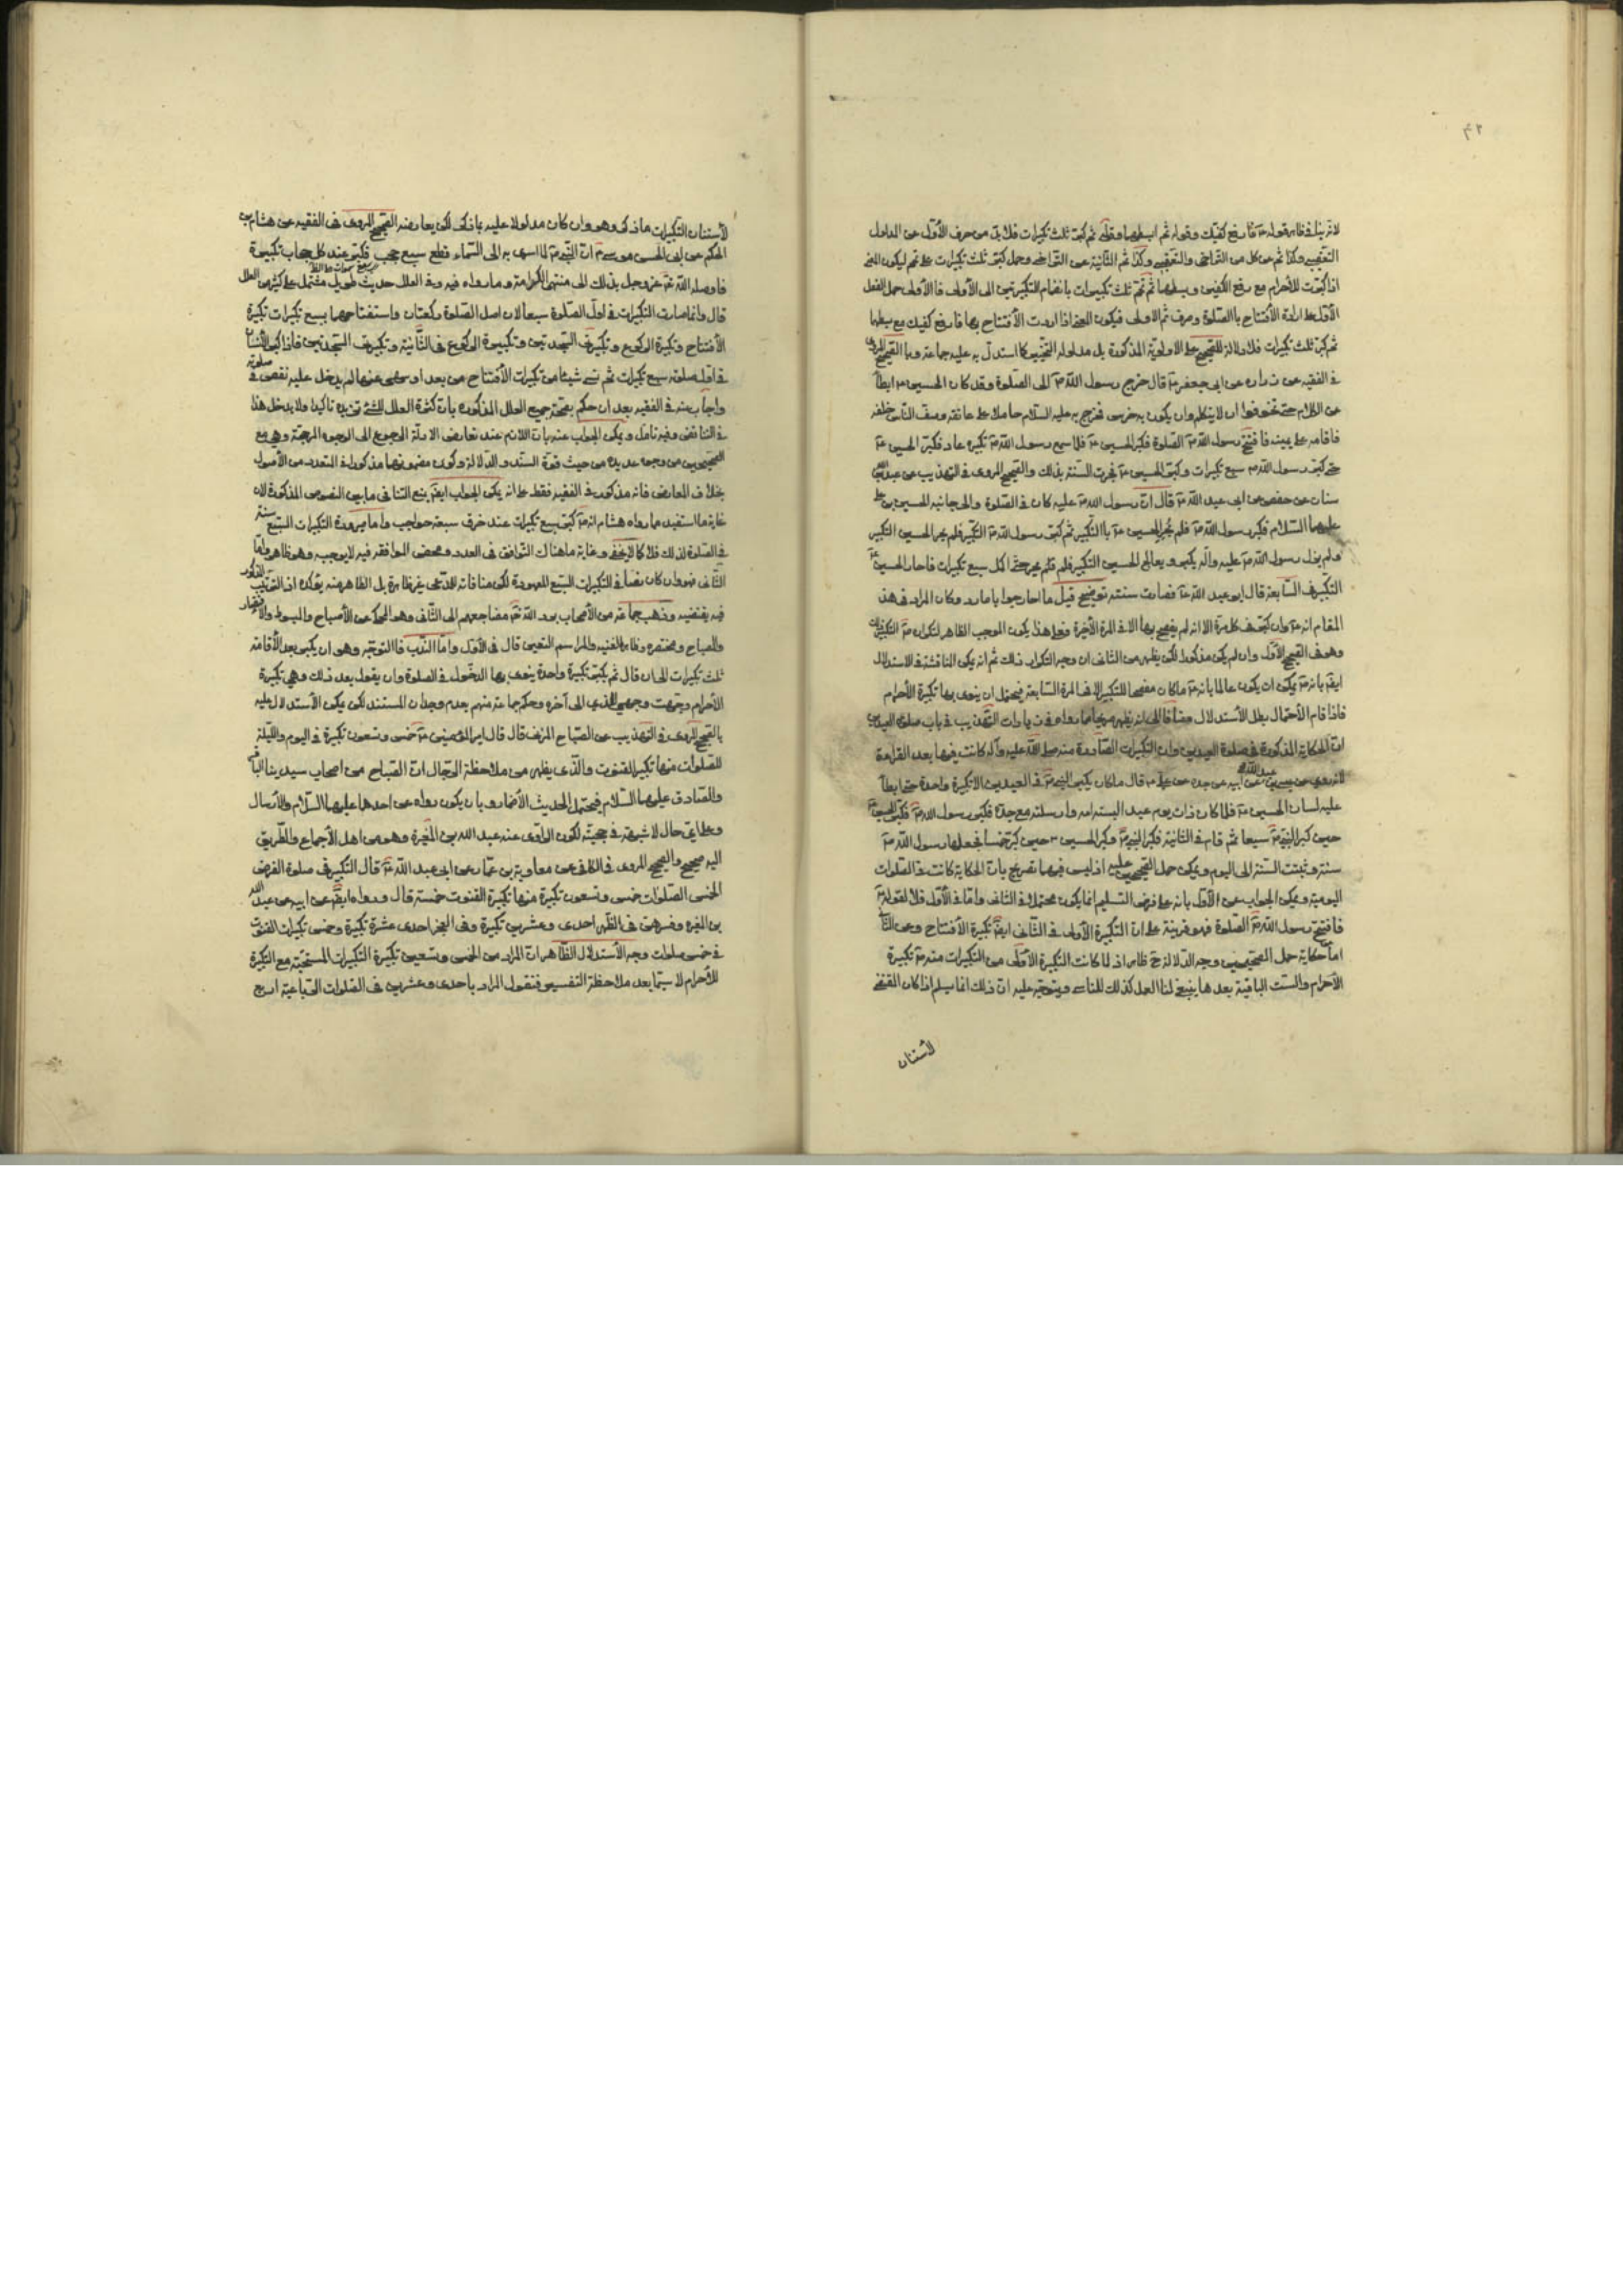 لانه ينافي ظاهر قوله ع فارفع كفيك وقوله ثم ابسطهما وقوله ثم كبر ثلث تكبيرات فلا بد من صرف الأول عن المدلول
التعقيبي وكذا ثم عن كل من التراخي والتعقيب وكذا ثم الثانية عن التراخي وحمل كبر ثلث تكبيرات على تمم ليكون المعنى
اذا كبرت للأحرام مع رفع الكفين وبسطهما ثم تمم ثلث تكبيرات بانضمام التكبيرتين الى الأولى فالأولى حمل الفعل
الأول على ارادة الأفتتاح بالصلوة وصرف ثم الاولى فيكون المعنى اذا اردت الأفتتاح بها فارفع كفيك مع بسطهما
ثم كبر ثلث تكبيرات فلا دلالة للصحيح على الاولوية المذكورة بل مدلوله التخيير كما استدل به عليه جماعة وبالصحيح المروي
في الفقيه عن زرارة عن ابي جعفر ع قال خرج رسول الله ص الى الصلوة وقد كان الحسين ع ابطأ
عن الكلام حتى تخوفوا ان لا يتكلم وان يكون به خرس فخرج به عليه السلام حاملا على عاتقه وصف الناس خلفه
فاقامه على يمينه فافتتح رسول الله ص الصلوة فكبر الحسين ع فلما سمع رسول الله ص تكبيره عاد فكبر الحسين ع
حتى كبر رسول الله ص سبع تكبيرات وكبر الحسين ع فجرت السنة بذلك والصحيح المروي في التهذيب عن عبد الله بن
سنان عن حفص عن ابي عبد الله ع قال ان رسول الله ص عليه كان في الصلوة والى جانبه الحسين بن علي
عليهما السلام فكبر رسول الله ص فلم يحر الحسين ع بالتكبير ثم كبر رسول الله ص التكبير فلم يحر الحسين التكبير
ولم يزل رسول الله ص عليه وآله يكبر ويعالج الحسين التكبير فلم يحر حتى اكمل سبع تكبيرات فاحار الحسين ع
التكبير في السابعة قال ابو عبد الله ع فصارت سنة توضيح قيل ما احار جوابا ما رد وكان المراد في هذا
المقام انه ع وان كبر في كل مرة الا انه لم يفصح بها الا في المرة الأخيرة وعلى هذا يكون الموجب الظاهر لتكراره ص التكبير ذلك
وهو في الصحيح الأول وان لم يكن مذكورا لكن يظهر من الثاني ان وجه التكرار ذلك ثم انه يمكن المناقشة في الاستدلال
ايضا بانه ص يمكن ان يكون عالما بانه ع ما كان مفصحا للتكبير الا في المرة السابعة فيحتمل ان ينوي بها تكبيرة الأحرام
فاذا قام الأحتمال بطل الأستدلال مضافا الى انه يظهر صريحا مما رواه في زيادات التهذيب في باب صلوة العيدين
ان الحكاية المذكورة في صلوة العيدين وان التكبيرات الصادرة منه صلى الله عليه وآله كانت فيها بعد القراءة
لانه روى عن عيسى بن عبد الله عن ابيه عن جده عن علي ع قال ما كان يكبر النبي ص في العيدين الا تكبيرة واحدة حتى ابطأ
عليه لسان الحسين ع فلما كان ذات يوم عيد البسته امه وارسلته مع جده فكبر رسول الله ص فكبر الحسين ع
حين كبر النبي ص سبعا ثم قام في الثانية فكبر النبي ص وكبر الحسين ع حين كبر خمسا فجعلها رسول الله ص
سنة وثبتت السنة الى اليوم ويمكن حمل الصحيحين عليه اذ ليس فيهما تصريح بان الحكاية كانت في الصلوات
اليومية ويمكن الجواب عن الأول بانه على فرض التسليم انما يكون محتملا في الثاني واما في الأول فلا لقوله ع
فافتتح رسول الله ص الصلوة فهو قرينة على ان التكبيرة الأولى في الثاني ايضا تكبيرة الأفتتاح وعن الثاني
اما حكاية حمل الصحيحين وجه الدلالة ح ظاهر اذ لما كانت التكبيرة الأولى من التكبيرات منه ص تكبيرة
الأحرام والست الباقية بعدها ينبغي لنا العمل كذلك للتاسي ويتوجه عليه ان ذلك انما يسلم اذا كان المقتضي
لأستنان
لأستنان التكبيرات ما ذكر وهو وان كان مدلولا عليه بما ذكر لكن يعارضه الصحيح المروي في الفقيه عن هشام بن
الحكم عن ابي الحسن موسى ع ان النبي ص لما اسري به الى السماء قطع سبع حجب فكبر عند كل حجاب تكبيرة
فاوصله الله عز وجل بذلك الى منتهى الكرامة وما رواه فيه وفي العلل حديث طويل مشتمل على كثير من العلل
قال وانما صارت التكبيرات في اول الصلوة سبعا لان اصل الصلوة ركعتان واستفتاحهما بسبع تكبيرات تكبيرة
الأفتتاح وتكبيرة الركوع وتكبيرتي السجدتين وتكبيرة الركوع في الثانية وتكبيرتي السجدتين فاذا كبر الأنسان
في اول صلوته سبع تكبيرات ثم نسي شيئا من تكبيرات الأفتتاح من بعد او سهى عنها لم يدخل عليه نقص في صلوته
واجاب عنه في الفقيه بعد ان حكم بصحة جميع العلل المذكورة بان كثرة العلل للشئ تزيده تاكيدا ولا يدخل هذا
في التناقض وفيه تامل ويمكن الجواب عنه بان اللازم عند تعارض الادلة الرجوع الى الوجوه المرجحة وهي مع
الصحيحين من وجوه عديدة من حيث قوة السند والدلالة وكون مضمونهما مذكورا في المتعدد من الأصول
بخلاف المعارض فانه مذكور في الفقيه فقط على انه يمكن الجواب ايضا بمنع التنافي ما بين النصوص المذكورة لان
غاية ما استفيد مما رواه هشام انه ص كبر سبع تكبيرات عند خرق سبعة حواجب واما صيرورة التكبيرات السبع سنة
في الصلوة لذلك فلا كما لا يخفى وغاية ما هناك التوافق في العدد ومحض الموافقة فيه لا يوجبه وهو ظاهر واما
الثاني فهو وان كان نصا في التكبيرات السبع المعهودة لكن منافاته للمدعى غير ظاهرة بل الظاهر منه يؤكده اذ الترتيب المذكور
فيه يقتضيه وذهب جماعة من الأصحاب نور الله تعالى مضاجعهم الى الثاني وهو المحكي عن الأصباح والمبسوط والأقتصاد
والمصباح ومختصره وظاهر الغنيه والمراسم المتعين قال في الأول واما الندب فالتوجه وهو ان يكبر بعد الأقامة
ثلث تكبيرات الى ان قال ثم يكبر تكبيرة واحدة ينوي بها الدخول في الصلوة وان يقول بعد ذلك وهي تكبيرة
الأحرام وجهت وجهي للذي الى آخره وحكم جماعة منهم بعدم وجدان المستند لكن يمكن الأستدلال عليه
بالصحيح المروي في التهذيب عن الصباح المزني قال قال امير المؤمنين ع خمس وتسعون تكبيرة في اليوم والليلة
للصلوات منها تكبير القنوت والذي يظهر من ملاحظة الرجال ان الصباح من اصحاب سيدينا الباقر
والصادق عليهما السلام فيحتمل الحديث الأضمار وبان يكون رواه عن احدهما عليهما السلام والأرسال
وعلى اي حال لا شبهة في حجيته لكون الراوي عنه عبد الله بن المغيرة وهو من اهل الأجماع والطريق
اليه صحيح والصحيح المروي في الكافي عن معاوية بن عمار عن ابي عبد الله ع قال التكبير في صلوة الفرض
الخمس الصلوات خمس وتسعون تكبيرة منها تكبيرة القنوت خمسة قال ورواه ايضا عن ابيه عن عبد الله
بن المغيرة وفسرهن في الظهر احدى وعشرين تكبيرة وفي الفجر احدى عشرة تكبيرة وخمس تكبيرات القنوت
في خمس صلوات وجه الأستدلال الظاهر ان المراد من الخمس وتسعين تكبيرة التكبيرات المستحبة مع التكبيرة
للأحرام لا سيما بعد ملاحظة التفسير فنقول المراد باحدى وعشرين في الصلوات الرباعية اربع